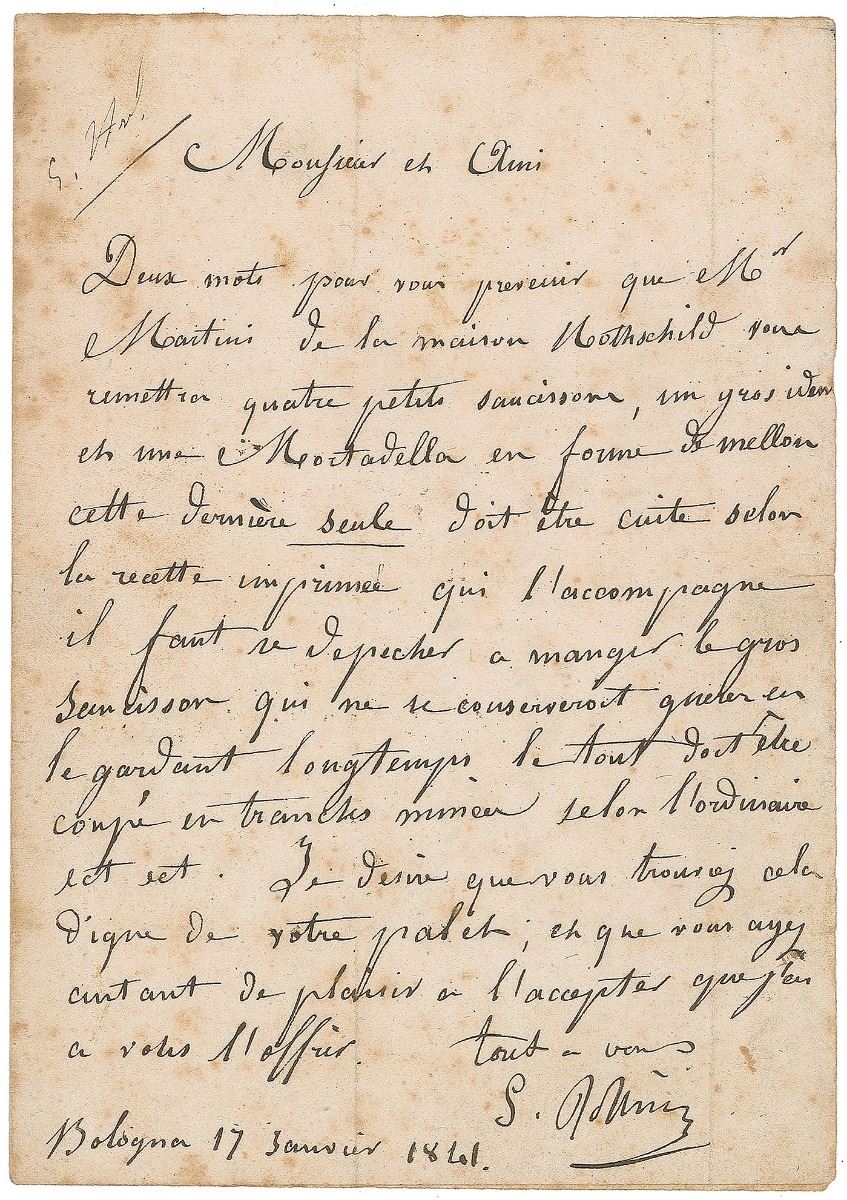 Monsieur et Ami
Deux mots pour vous prevenir que Mr
Martini de la maison Rothschild vous
remettra quatre petits saucissons, un gros idem
et une Mortadella en forme de mellon
cette dernière seule doit être cuite selon
la recette imprimée qui l'accompagne
il faut se depecher a manger le gros
saucisson qui ne se conserveroit guere en
le gardant longtemps le tout doit être
coupé en tranches minces selon l'ordinaire
ect ect. Je desire que vous trouviez cela
digne de votre palet; et que vous ayez
autant de plaisir a l'accepter que j'ai
a vous l'offrir. tout a vous
G. Rossini
Bologna 17 Janvier 1841.